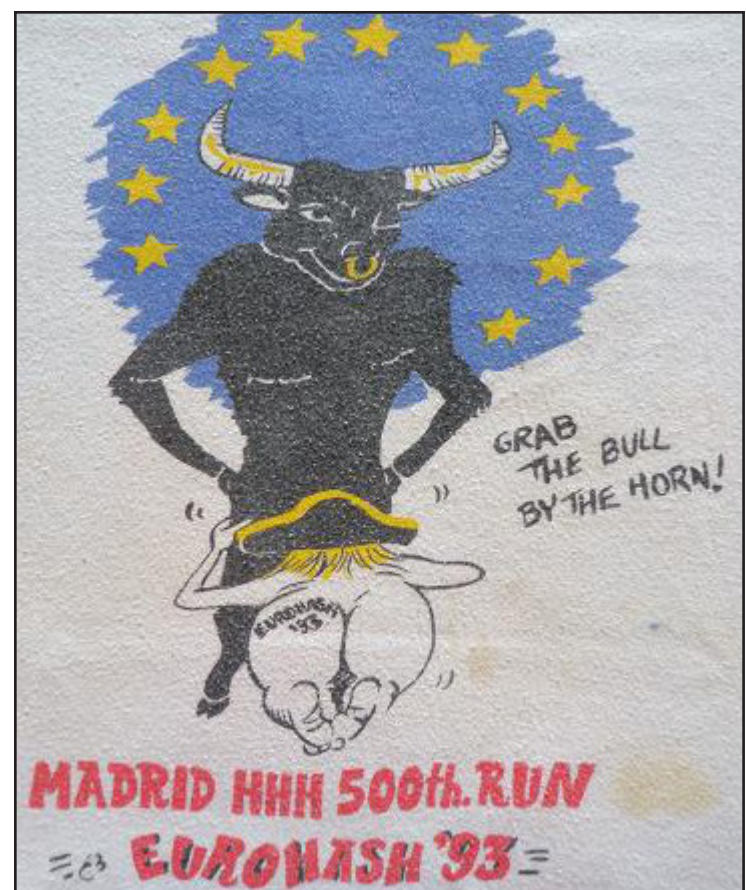 GRAB
THE BULL
BY THE HORN!
EUROHASH
'93
MADRID HHH 500th. RUN
EUROHASH '93